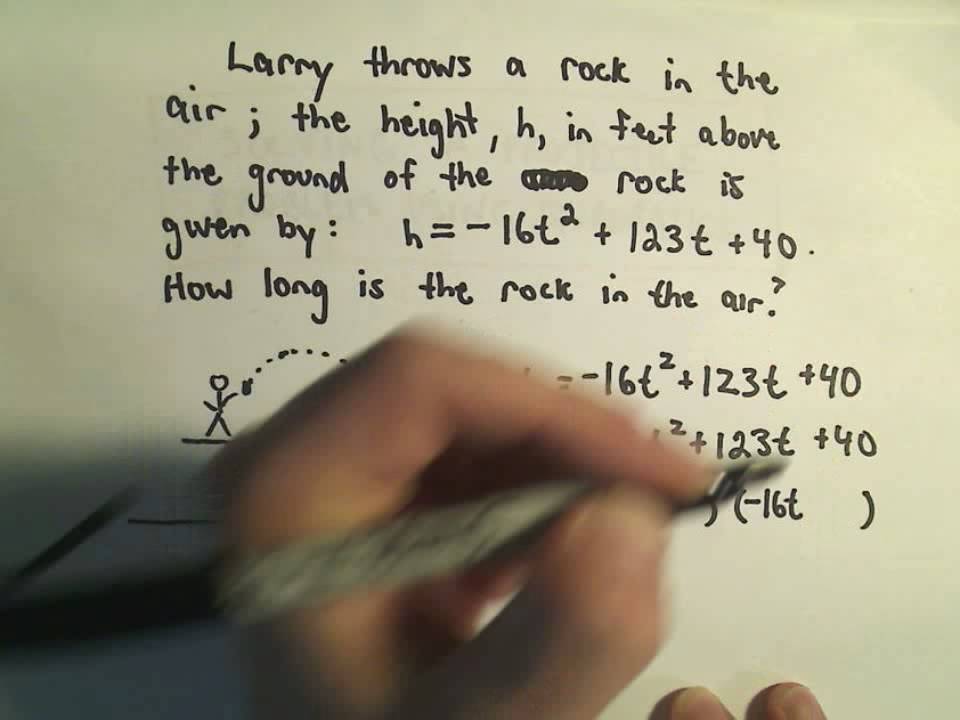 Larry throws a rock in the
air; the height, h, in feet above
the ground of the rock is
given by: h = -16t² + 123t + 40.
How long is the rock in the air?
= -16t² + 123t + 40
² + 123t + 40
) (-16t )